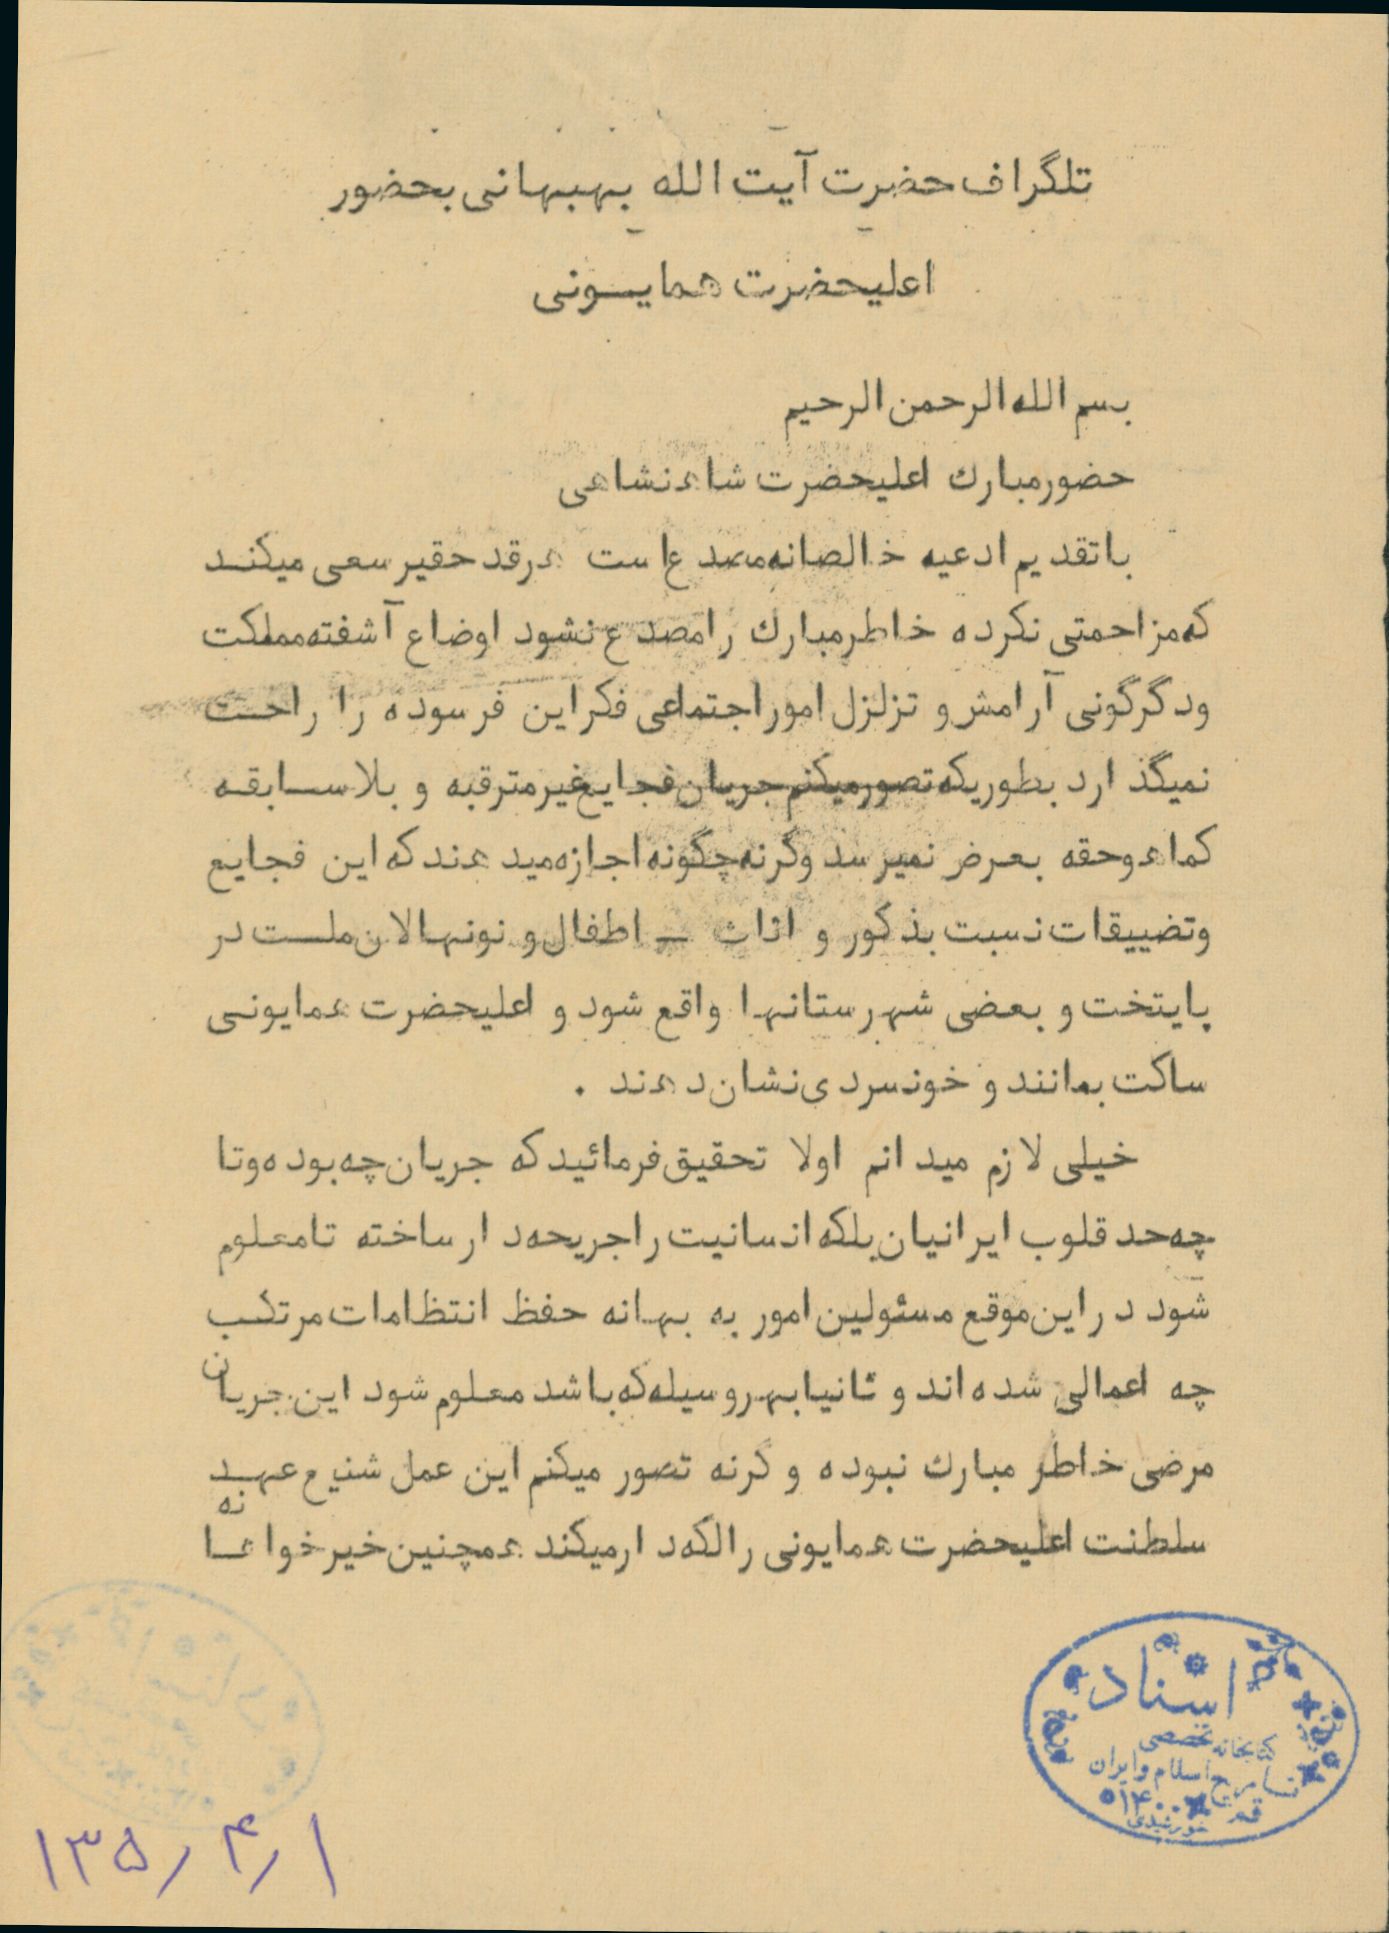 تلگراف حضرت آیت الله بهبهانی بحضور
اعلیحضرت همایونی
بسم الله الرحمن الرحیم
حضور مبارك اعلیحضرت شاهنشاهی
با تقدیم ادعیه خالصانه مصدع است هر قد حقیر سعی میکند
که مزاحمتی نکرده خاطر مبارك را مصدع نشود اوضاع آشفته مملکت
ودگرگونی آرامش و تزلزل امور اجتماعی فکر این فرسوده را راحت
نمیگذارد بطوریکه تصور میکنم جریان فجایع غیر مترقبه و بلا سابقه
کماهو حقه بعرض نمیرسد وگرنه چگونه اجازه میدهند که این فجایع
وتضییقات نسبت بذکور و اناث ــ اطفال و نونهالان ملت در
پایتخت و بعضی شهرستانها واقع شود و اعلیحضرت همایونی
ساکت بمانند و خونسردی نشان دهند .
خیلی لازم میدانم اولا تحقیق فرمائید که جریان چه بوده وتا
چه حد قلوب ایرانیان بلکه انسانیت را جریحه دار ساخته تا معلوم
شود در این موقع مسئولین امور به بهانه حفظ انتظامات مرتکب
چه اعمالی شده اند و ثانیا بهر وسیله که باشد معلوم شود این جریان
مرضی خاطر مبارك نبوده و گرنه تصور میکنم این عمل شنیع عهد
سلطنت اعلیحضرت همایونی را لکه دار میکند همچنین خیرخواهانه
اسناد
کتابخانه تخصصی
تاریخ اسلام و ایران
قم ۱۴۰۰
خورشیدی
۱۳۵/۴/۱